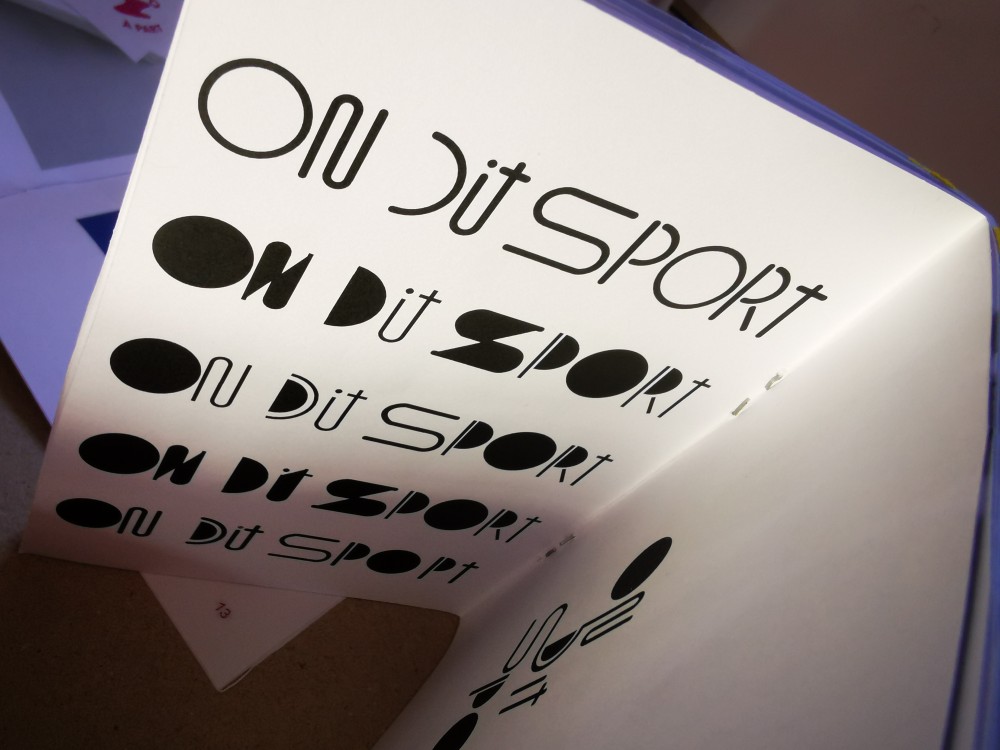 A PART
ON Dit SPORT
ON Dit SPORT
ON Dit SPORT
ON Dit SPORT
ON Dit SPOPt
13